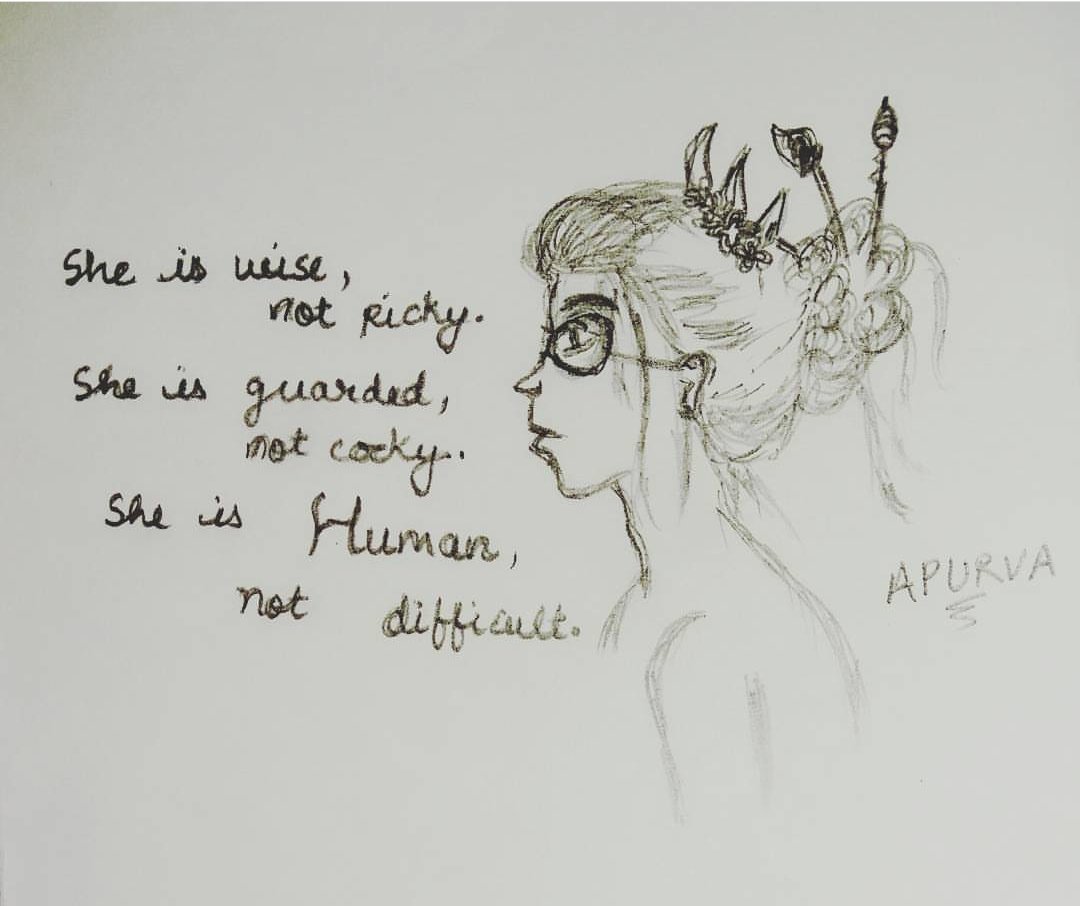 She is wise,
not picky.
She is guarded,
not cocky.
She is Human,
not difficult.
APURVA